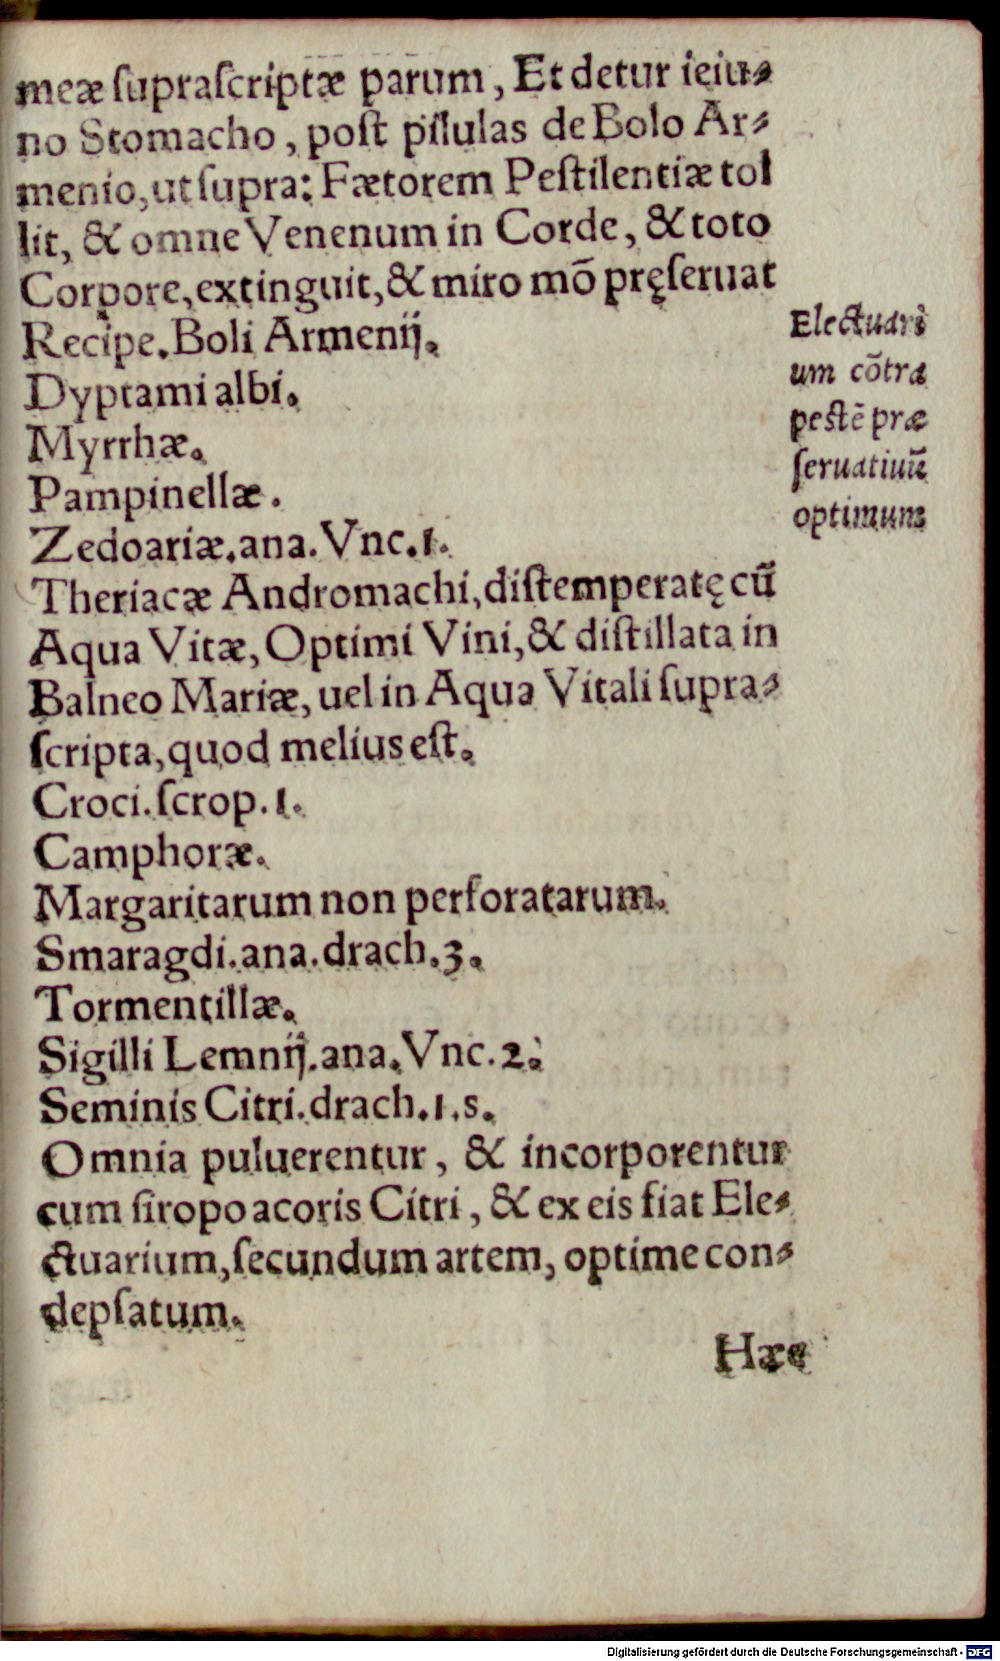 meæ ſupraſcriptæ parum, Et detur ieiu⸗
no Stomacho, poſt pillulas de Bolo Ar⸗
menio, ut ſupra: Fætorem Peſtilentiæ tol
lit, & omne Venenum in Corde, & toto
Corpore, extinguit, & miro mō pręſeruat
Recipe. Boli Armenij.
Dyptami albi.
Myrrhæ.
Pampinellæ.
Zedoariæ. ana. Vnc. 1.
Theriacæ Andromachi, diſtemperatę cū
Aqua Vitæ, Optimi Vini, & diſtillata in
Balneo Mariæ, uel in Aqua Vitali ſupra⸗
ſcripta, quod melius eſt.
Croci. ſcrop. 1.
Camphoræ.
Margaritarum non perforatarum.
Smaragdi. ana. drach. 3.
Tormentillæ.
Sigilli Lemnij. ana. Vnc. 2.
Seminis Citri. drach. 1. s.
Omnia puluerentur, & incorporentur
cum ſiropo acoris Citri, & ex eis fiat Ele⸗
ctuarium, ſecundum artem, optime con⸗
depſatum.
Hæc
Electuari
um cōtra
peſtē præ
ſeruatiuū
optimum
Digitalisierung gefördert durch die Deutsche Forschungsgemeinschaft - DFG